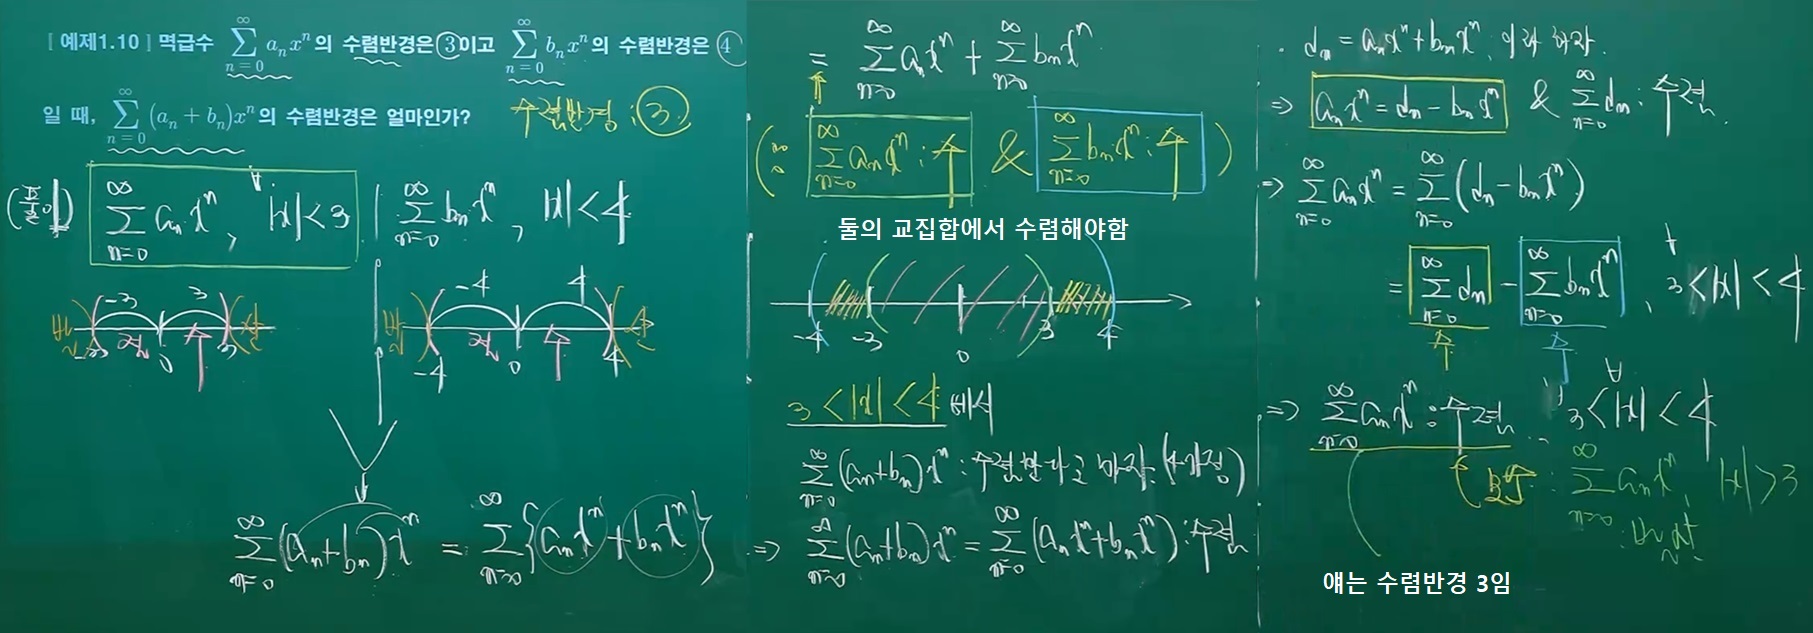 [ 예제1.10 ] 멱급수 \sum_{n=0}^{\infty} a_n x^n 의 수렴반경은 ③이고 \sum_{n=0}^{\infty} b_n x^n 의 수렴반경은 ④
일 때, \sum_{n=0}^{\infty} (a_n + b_n)x^n 의 수렴반경은 얼마인가? 수렴반경 : ③.
(풀이) \sum_{n=0}^{\infty} a_n x^n, ∀|x| < 3 | \sum_{n=0}^{\infty} b_n x^n, |x| < 4
-3 3
발 산
-3 절 0 수 3
-4 4
발 산
-4 절 0 수 4
\sum_{n=0}^{\infty} (a_n + b_n) x^n = \sum_{n=0}^{\infty} {a_n x^n + b_n x^n}
= \sum_{n=0}^{\infty} a_n x^n + \sum_{n=0}^{\infty} b_n x^n
(∵ \sum_{n=0}^{\infty} a_n x^n : 수 & \sum_{n=0}^{\infty} b_n x^n : 수)
둘의 교집합에서 수렴해야함
-4 -3 0 3 4
3 < |x| < 4 에서
\sum_{n=0}^{\infty} (a_n + b_n) x^n : 수렴한다고 하자. (가정)
⇒ \sum_{n=0}^{\infty} (a_n + b_n) x^n = \sum_{n=0}^{\infty} (a_n x^n + b_n x^n) : 수렴
. d_n = a_n x^n + b_n x^n 이라 하자.
⇒ a_n x^n = d_n - b_n x^n & \sum_{n=0}^{\infty} d_n : 수렴.
⇒ \sum_{n=0}^{\infty} a_n x^n = \sum_{n=0}^{\infty} (d_n - b_n x^n)
= \sum_{n=0}^{\infty} d_n - \sum_{n=0}^{\infty} b_n x^n, ∀ 3 < |x| < 4
수 수
⇒ \sum_{n=0}^{\infty} a_n x^n : 수렴, ∀ 3 < |x| < 4
모순 : \sum_{n=0}^{\infty} a_n x^n, |x| > 3
: 발산
얘는 수렴반경 3임